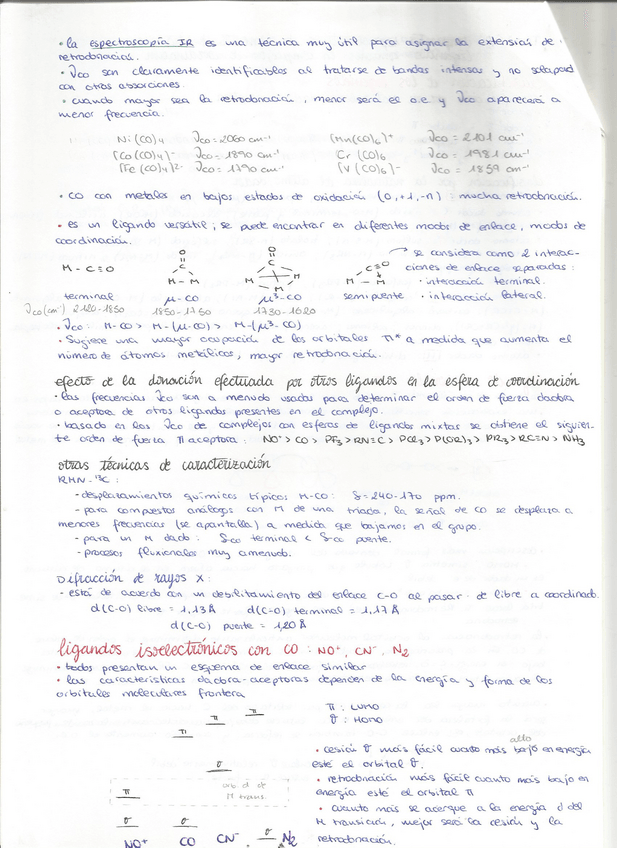 • la espectroscopía IR es una técnica muy útil para asignar la extensión de
retrodonación.
• νco son claramente identificables al tratarse de bandas intensas y no solapad
con otras absorciones.
• cuando mayor sea la retrodonación, menor será el o.e y νco aparecerá a
menor frecuencia.
Ni(CO)4 νco = 2060 cm⁻¹ [Mn(CO)6]⁺ νco = 2101 cm⁻¹
[Co(CO)4]⁻ νco = 1890 cm⁻¹ Cr(CO)6 νco = 1981 cm⁻¹
[Fe(CO)4]²⁻ νco = 1790 cm⁻¹ [V(CO)6]⁻ νco = 1859 cm⁻¹
• CO con metales en bajos estados de oxidación (0, +1, -n) = mucha retrodonación.
• es un ligando versátil; se puede encontrar en diferentes modos de enlace, modos de
coordinación.
M - C ≡ O
O
C
M - M
O
C
M M
M
C≡O
M - M
→ se considera como 2 interac-
ciones de enlace separadas:
• interacción terminal.
• interacción lateral.
terminal μ-CO μ³-CO semipuente
νco (cm⁻¹) 2120-1850 1850-1750 1730-1620
• νco: M-CO > M-(μ-CO) > M-(μ³-CO)
• Sugiere una mayor ocupación de los orbitales π* a medida que aumenta el
número de átomos metálicos, mayor retrodonación.
efecto de la donación efectuada por otros ligandos en la esfera de coordinación
• las frecuencias νco son a menudo usadas para determinar el orden de fuerza dadora
o aceptora de otros ligandos presentes en el complejo.
• basado en las νco de complejos con esferas de ligandos mixtas se obtiene el siguien-
te orden de fuerza π aceptora: NO⁺ > CO > PF3 > RN≡C > PCl3 > P(OR)3 > PR3 > RC≡N > NH3
otras técnicas de caracterización
RMN-¹³C:
- desplazamientos químicos típicos M-CO: δ = 240-170 ppm.
- para compuestos análogos con M de una triada, la señal de CO se desplaza a
menores frecuencias (se apantalla) a medida que bajamos en el grupo.
- para un M dado: δco terminal < δco puente.
- procesos fluxionales muy a menudo.
Difracción de rayos X:
- está de acuerdo con un debilitamiento del enlace C-O al pasar de libre a coordinado.
d(C-O) libre = 1,13Å d(C-O) terminal = 1,17Å
d(C-O) puente = 1,20Å
ligandos isoelectrónicos con CO: NO⁺, CN⁻, N2
• todos presentan un esquema de enlace similar
• las características dadora-aceptoras dependen de la energía y forma de los
orbitales moleculares frontera
π π
π
σ
π
orb d de
M trans.
σ σ
σ
NO⁺ CO CN⁻ N2
π: LUMO
σ: HOMO
alto
• cesión σ más fácil cuanto más bajo en energía
esté el orbital σ.
• retrodonación más fácil cuanto más bajo en
energía esté el orbital π
• cuanto más se acerque a la energía d del
M transición, mejor será la cesión y la
retrodonación.